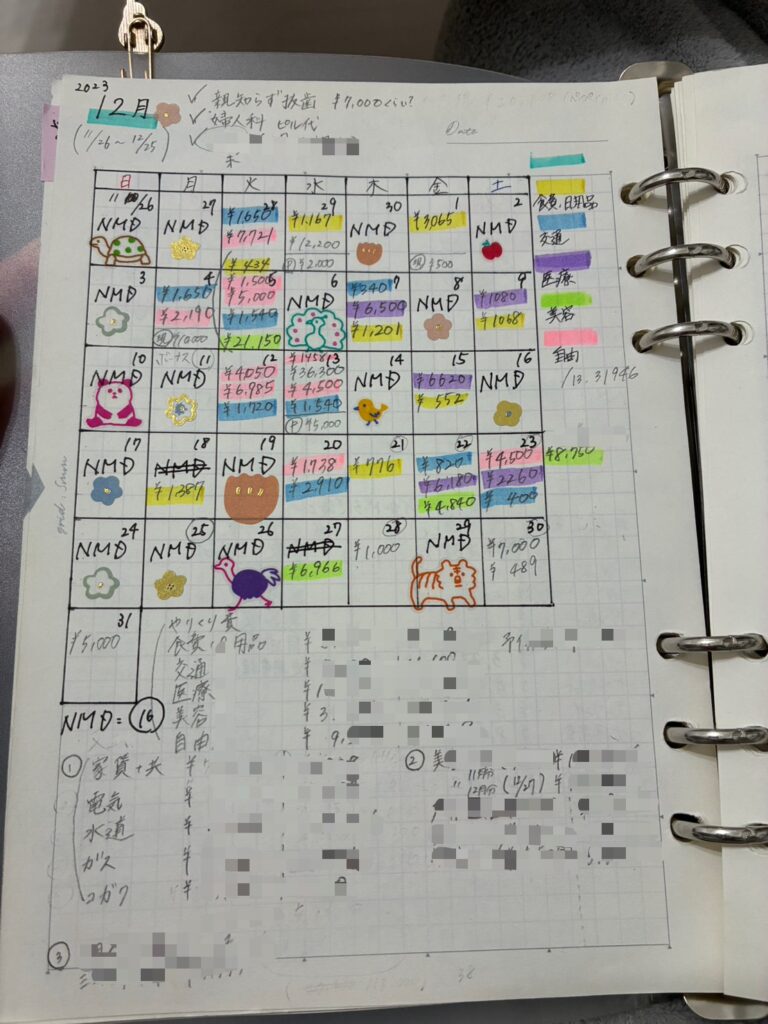 2023
12月
(11/26〜12/25)
✓ 親知らず抜歯 ¥7,000くらい?
✓ 婦人科 ピル代
✓
Date
日 月 火 水 木 金 土
11/26 27 28 29 30 1 2
NMD NMD ¥1,650 ¥1,167 NMD ¥3,065 NMD
¥7,721 ¥12,200
¥434 ¥2,000 ¥500
3 4 5 6 7 8 9
NMD ¥1,650 ¥1,500 NMD ¥340 NMD ¥1080
¥2,190 ¥5,000 ¥6,500 ¥1068
¥10,000 ¥1,540 ¥1,201
¥21,150
10 ボーナス 11 12 13 14 15 16
NMD NMD ¥4050 ¥1458 NMD ¥6620 NMD
¥6,985 ¥36,300 ¥552
¥1,720 ¥4,500
¥1,540
¥5,000
17 18 19 20 21 22 23
NMD NMD NMD ¥1,738 ¥776 ¥820 ¥4,500 ¥8,750
¥1,387 ¥2,910 ¥6,180 ¥2260
¥4,840 ¥400
24 25 26 27 28 29 30
NMD NMD NMD NMD ¥1,000 NMD ¥7,000
¥6,966 ¥489
31
¥5,000
食費、日用品
交通
医療
美容
自由
/13.31946
NMD=16
やりくり費
食費、日用品 ¥
交通 ¥
医療 ¥1
美容 ¥3.
自由 ¥9,
① 家賃+共 ¥
電気 ¥
水道 ¥
ガス ¥
¥
② 美
11月分
12月分 (12/27) ¥
③